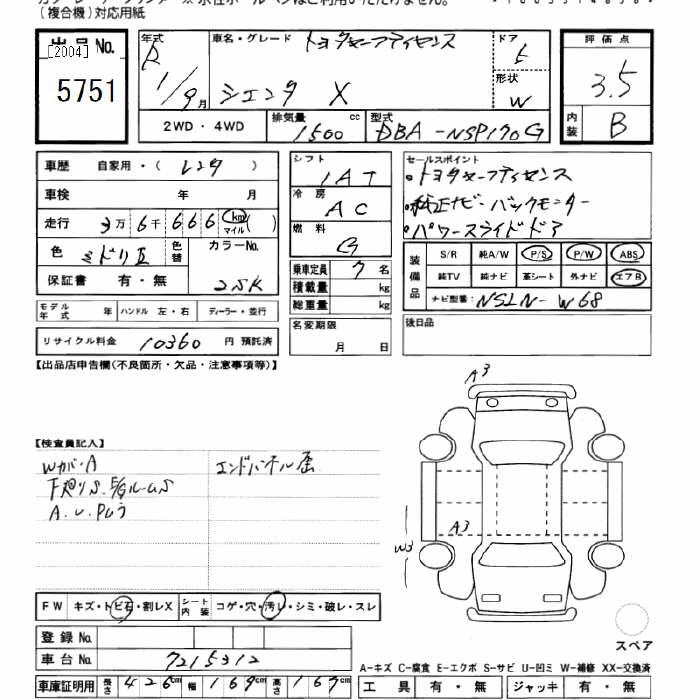 (複合機)対応用紙
出品No.
[2004]
5751
年式
R 1/9月
車名・グレード
トヨタセーフティセンス
シエンタ X
ドア
5
形状
W
評価点
3.5
内装
B
2WD・4WD
排気量 1500 cc
型式 DBA-NSP170G
車歴 自家用・( レンタ )
車検 年 月
走行 3万6千666 km マイル ( )
色 ミドリⅡ
色替
カラーNo. 2SK
保証書 有・無
モデル年式 年 ハンドル 左・右 ディーラー・並行
リサイクル料金 10360 円 預託済
シフト
1AT
冷房
AC
燃料
G
乗車定員 7名
積載量 kg
総重量 kg
名変期限
月 日
セールスポイント
・トヨタセーフティセンス
・純正ナビ バックモニター
・パワースライドドア
装備品
S/R 純A/W P/S P/W ABS
純TV 純ナビ 革シート 外ナビ エアB
ナビ型番: NSLN-W68
後日品
【出品店申告欄(不良箇所・欠品・注意事項等)】
【検査員記入】
Wカバー A
エンドパネル歪
A.U.Pレう
A3
A3
W3
FW キズ・トビ石・割レX
シート内装 コゲ・穴・汚レ・シミ・破レ・スレ
登録No.
車台No. 7215312
スペア
A-キズ C-腐食 E-エクボ S-サビ U-凹ミ W-補修 XX-交換済
車庫証明用 長さ 426cm 幅 169cm 高さ 167cm
工具 有・無 ジャッキ 有・無